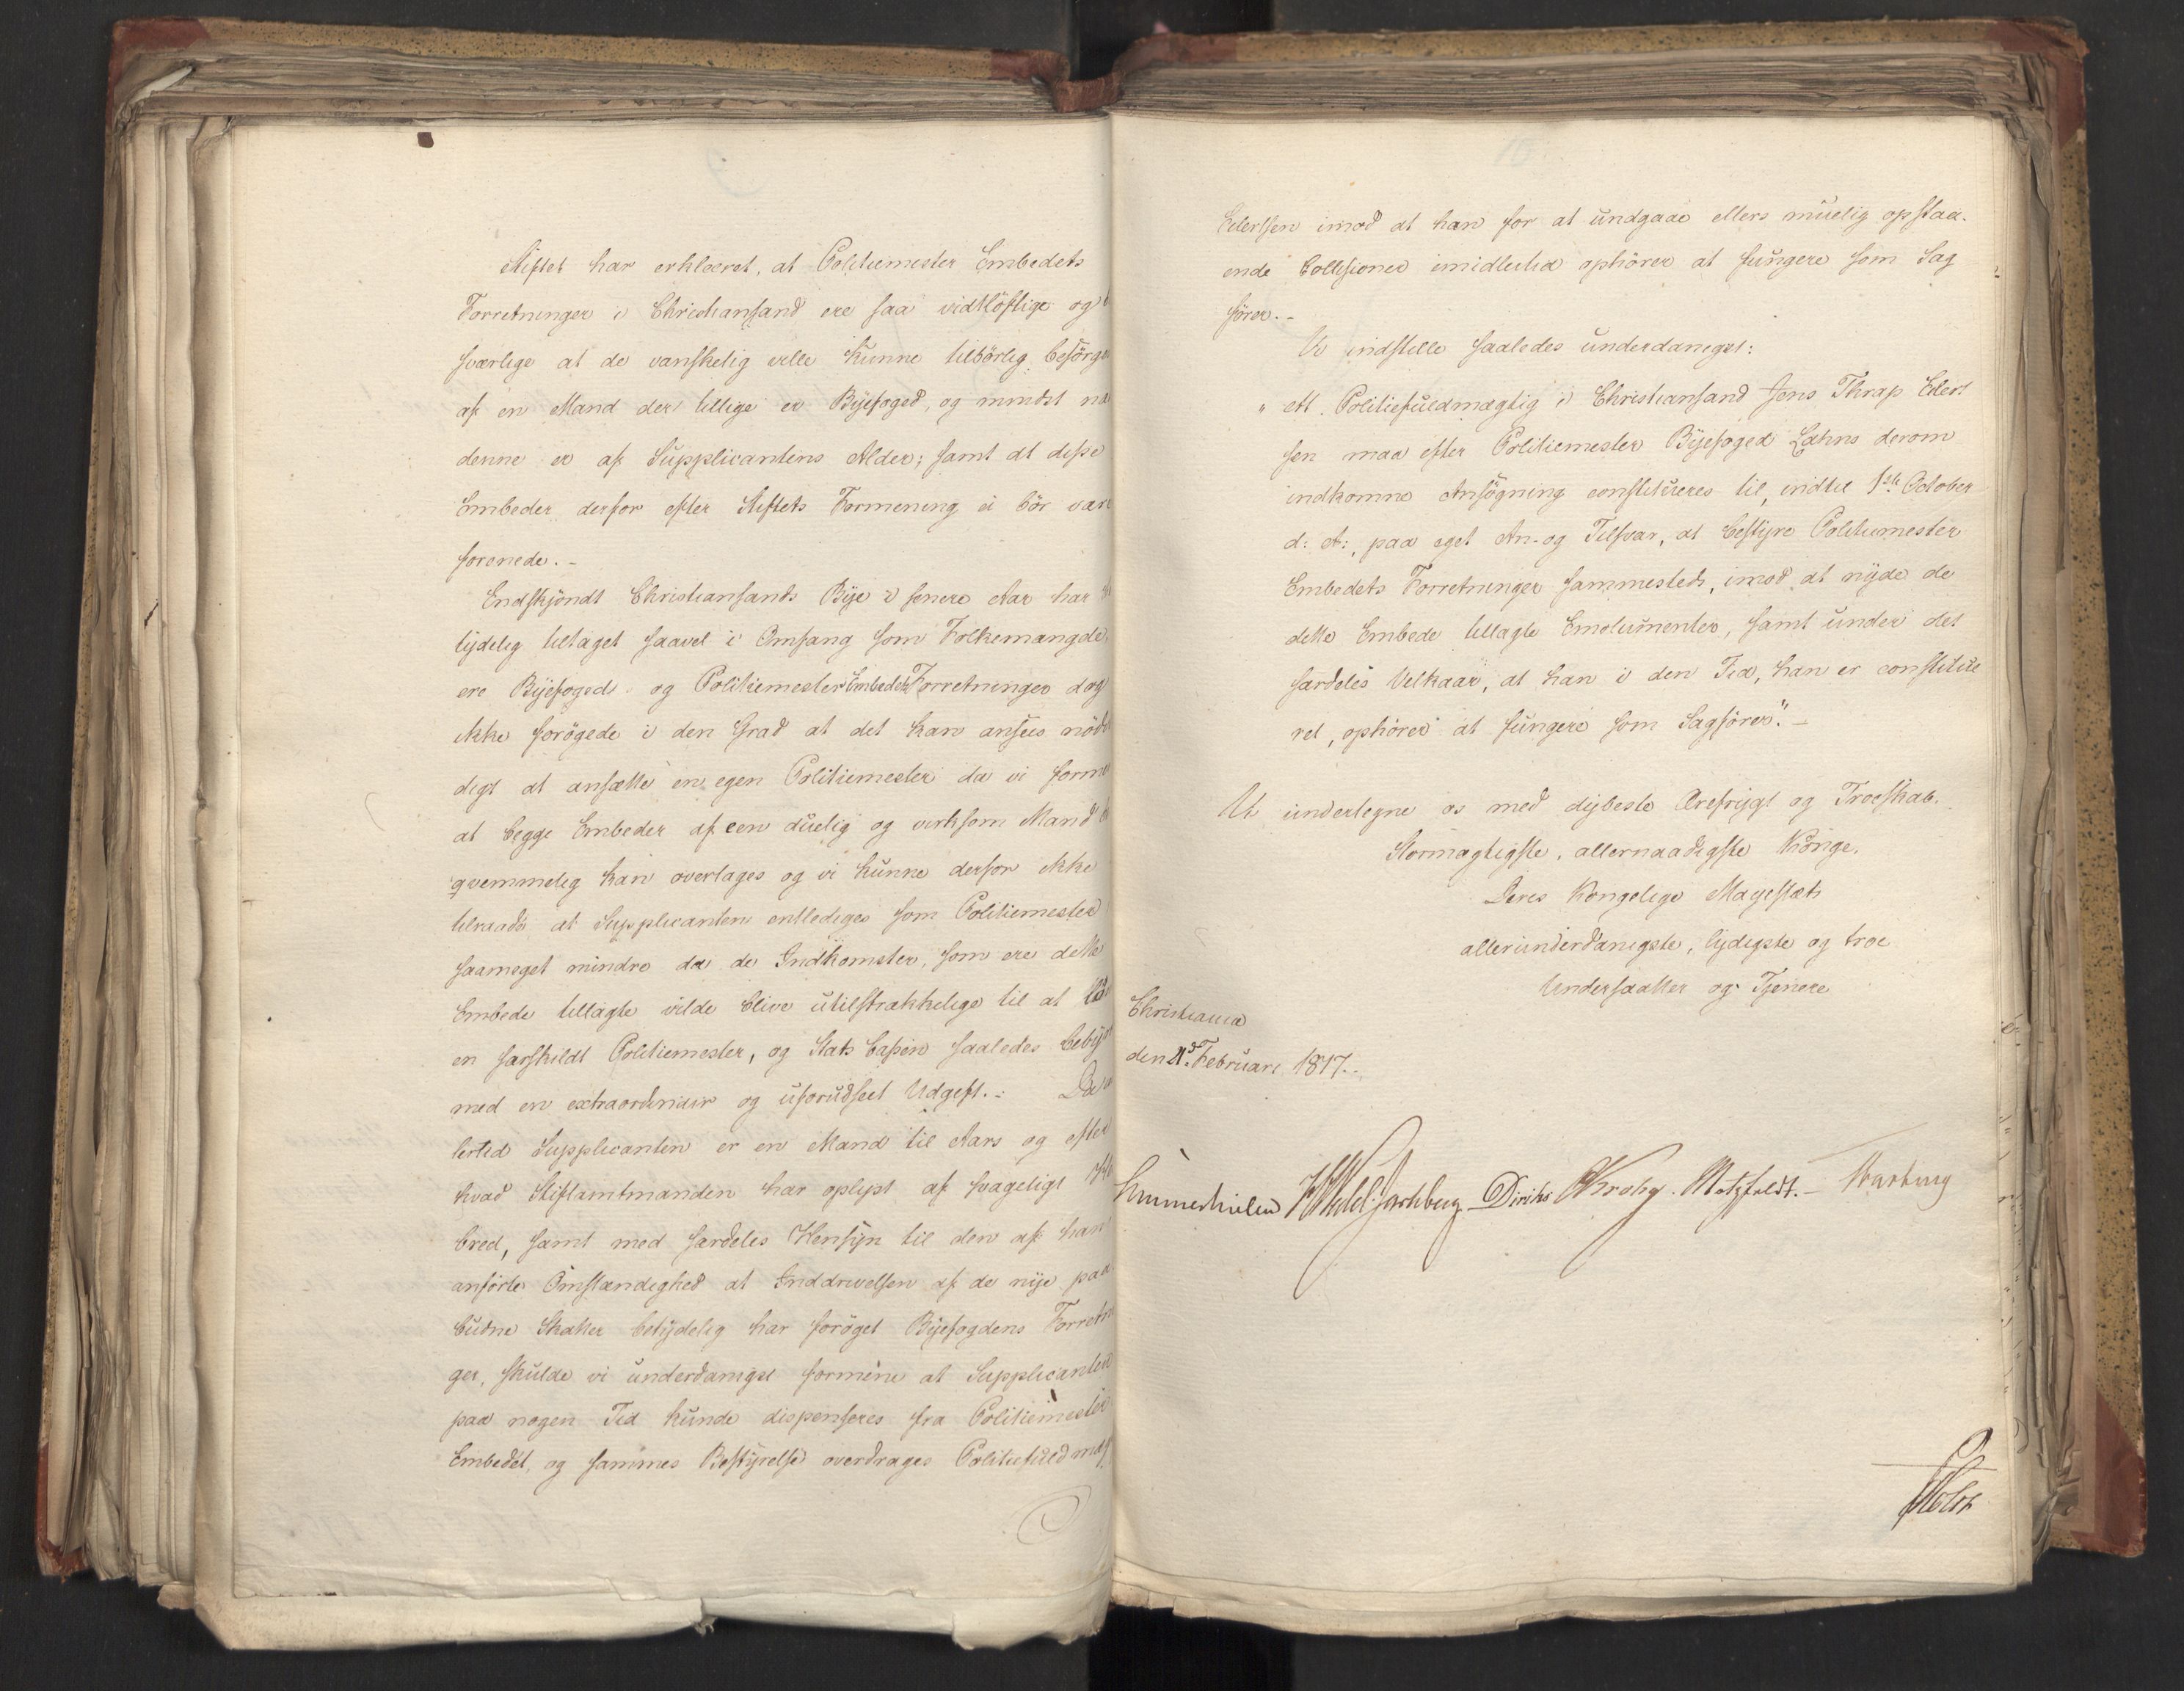 Stiftet har erklæret, at Politiemester Embedets
Forretninger i Christiansand ere saa vidtløftige og be
sværlige at de vanskelig ville kunne tilbörlig besörges
af en Mand der tillige er Byefoged, og mindst naar
denne er af Supplicantens Alder; samt at disse
Embeder derfor efter Stiftets Formening ei bör være
forenede. -
Endskjöndt Christiansands Bye i senere Aar har be
tydelig tiltaget saavel i Omfang som Folkemængde,
ere Byefoged- og Politiemester Embedets Forretninger dog
ikke forögede i den Grad at det kan ansees nödven
digt at ansætte en egen Politiemester da vi formene
at begge Embeder af een duelig og virksom Mand be
qvemmelig kan overtages og vi kunne derfor ikke
tilraade at Supplicanten entlediges som Politiemester
saameget mindre da de Indkomster, som ere dette
Embede tillagte vilde blive utilstrækkelige til at lönne
en særskildt Politiemester, og Stats Cassen saaledes bebyrdes
med en extraordinair og uforudseet Udgift. -
lertid Supplicanten er en Mand til Aars og efter
hvad Stiftamtmanden har oplyst af svageligt Hel
bred, samt med særdeles Hensyn til den af ham
anförte Omstændighed at Inddrivelsen af de nye paa
budne Skatter betydelig har foröget Byefogdens Forretnin
ger, skulde vi underdanigst formene at Supplicanten
paa nogen Tid kunde dispenseres fra Politiemester
Embedet, og sammes Bestyrelse overdrages Politiefuldmægtig
Eilertsen imod at han for at undgaae ellers muelig opstaa-
ende Collisioner imidlertid ophörer at fungere som Sag
förer. -
Vi indstille saaledes underdanigst:
" at Politiefuldmægtig i Christiansand Jens Thrap Eilert
sen maa efter Politiemester Byefoged Lahns derom
indkomne Ansögning constitueres til, indtil 1ste October
d: A:, paa eget An- og Tilsvar, at bestyre Politiemester
Embedets Forretninger sammesteds, imod at nyde de
dette Embede tillagte Emolumenter, samt under det
særdeles Vilkaar, at han i den Tid, han er constitue
ret, ophörer at fungere som Sagförer". -
Vi undertegne os med dybeste Ærefrygt og Troeskab.
Stormægtigste, allernaadigste Konge,
Deres Kongelige Majestæts
allerunderdanigste, lydigste og troe
Undersaatter og Tjenere
Christiania
den Februari 1817.
Sommerhielm HWedel Jarlsberg Diriks CKrohg. Motzfeldt. -
Holst